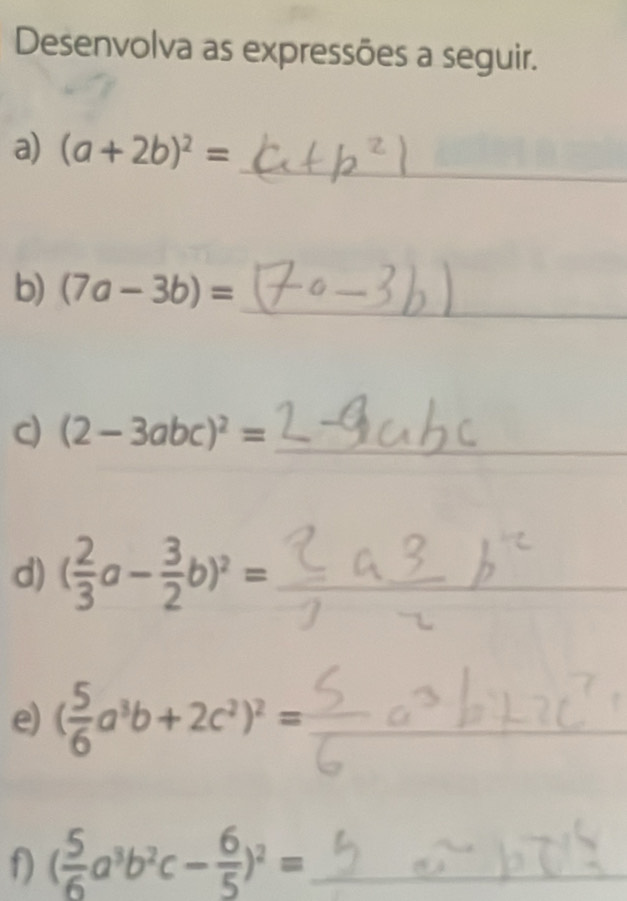 Desenvolva as expressões a seguir.
a) (a + 2b)² = (a+b²)
b) (7a – 3b) = (7a-3b)
c) (2 – 3abc)² = 2-9abc
d) (2/3 a – 3/2 b)² = 2 a 3 b²
e) (5/6 a³b + 2c²)² = 5/6 a³ b+2c²
f) (5/6 a³b²c – 6/5)² = 5